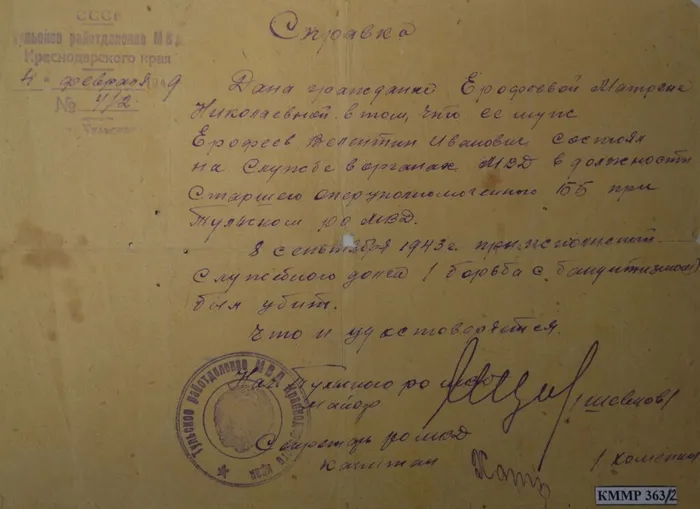 СССР
Тульское райотделение М.В.Д.
Краснодарского края
4 февраля 1949
№ 4/2
Справка
Дана гражданке Ерофеевой Матрене
Николаевной в том, что ее муж
Ерофеев Валентин Иванович состоял
на службе в органах МВД в должности
Старшего оперуполномоченного ББ при
Тульском РО МВД.
8 сентября 1943 г. при исполнении
служебного долга (борьба с бандитизмом)
был убит.
Что и удостоверяется.
Нач. Тульского РО МВД
майор
(Шевцов)
Секретарь РО МВД
капитан
(Хоменко)
Тульское райотделение М.В.Д. Краснод
КММР 363/2